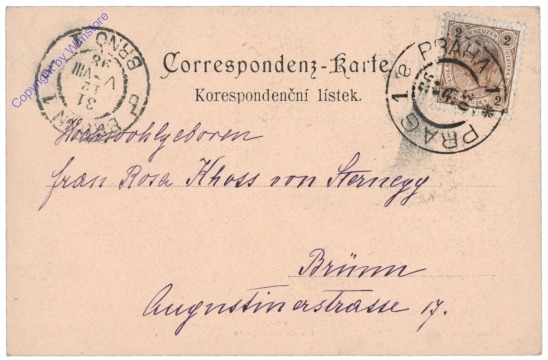 Copyright by Wanstore
Correspondenz-Karte.
Korespondenční lístek.
2 KREUZER 2
PRAG 1 PRAHA 1
BRÜNN 1 BRNO 1
31
12
V
VIII
98
Hochwohlgeboren
frau Rosa Khoss von Sternegg
Brünn
Augustinerstrasse 17.